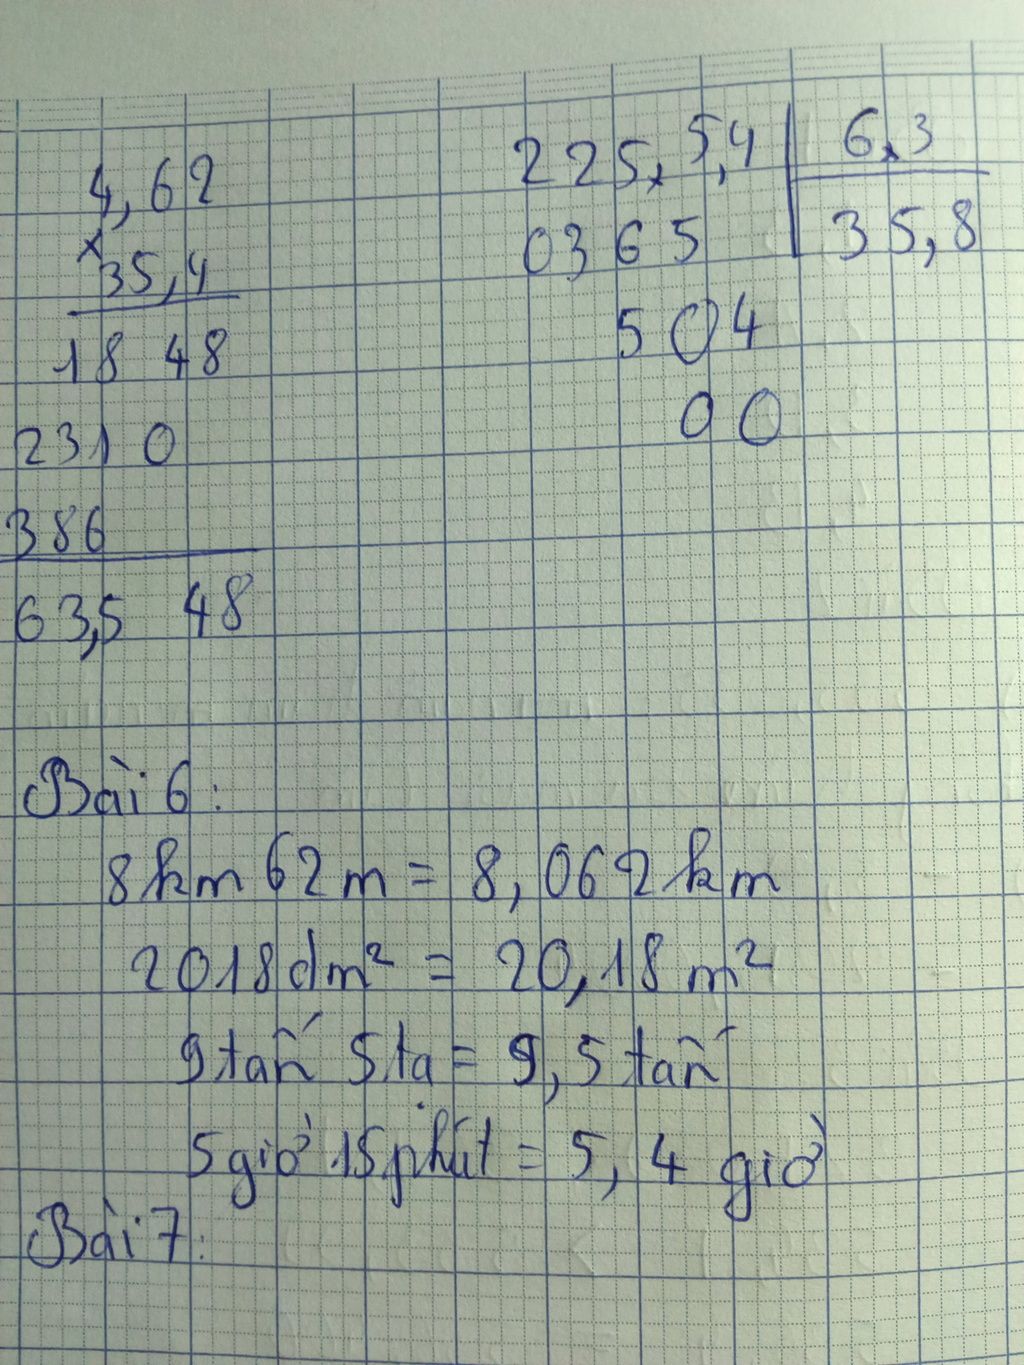 4,62
×
35,4
18 48
231 0
386
63,5 48
225,5,4 6,3
0365 35,8
504
00
Bài 6:
8km 62m = 8,062km
2018dm² = 20,18m²
9 tấn 5 tạ = 9,5 tấn
5 giờ 15 phút = 5,4 giờ
Bài 7: